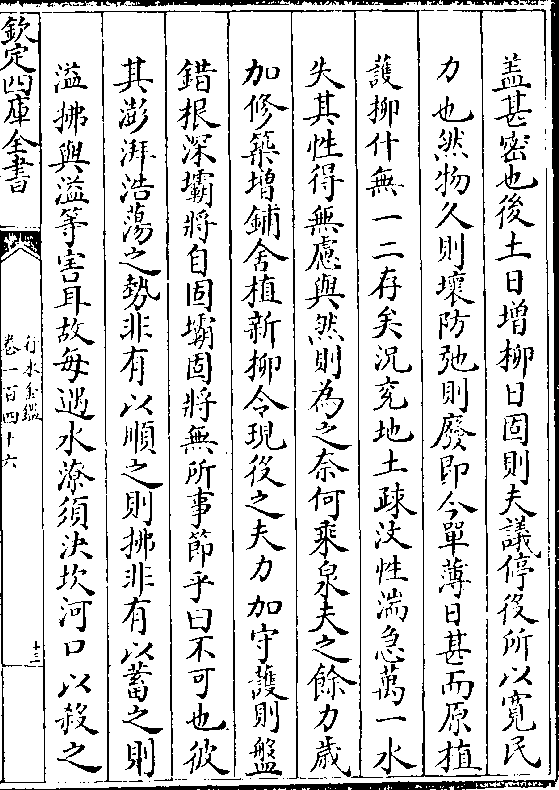 盖甚密也後土日增柳日固則夫議停後所以寛民
力也然物久則壞防弛則廢即今單薄日甚而原植
護柳什無一二存矣况兖地土疎汶性湍急萬一水
失其性得無慮與然則為之奈何乘泉夫之餘力歲
加修築增鋪舍植新柳令現役之夫力加守護則盤
錯根深壩將自固壩固將無所事節乎曰不可也彼
其澎湃浩蕩之勢非有以順之則拂非有以蓄之則
溢拂與溢等害耳故每遇水潦須決坎河口以殺之
欽定四庫全書
行水金鑑
卷一百四十六
十三